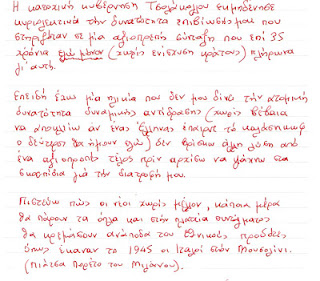 Η κατοχική κυβέρνηση Τσολάκογλου εκμηδένισε
κυριολεκτικά την δυνατότητα επιβίωσής μου που
στηριζόταν σε μια αξιοπρεπή σύνταξη που επί 35
χρόνια εγώ μόνον (χωρίς ενίσχυση κράτους) πλήρωνα
γι' αυτή.
Επειδή έχω μια ηλικία που δεν μου δίνει την ατομική
δυνατότητα δυναμικής αντίδρασης (χωρίς βέβαια
να αποκλείω αν ένας Έλληνας έπαιρνε το καλάσνικωφ
ο δεύτερος θα ήμουν εγώ) δεν βρίσκω άλλη λύση από
ένα αξιοπρεπές τέλος πριν αρχίσω να ψάχνω στα
σκουπίδια για την διατροφή μου.
Πιστεύω πως οι νέοι χωρίς μέλλον, κάποια μέρα
θα πάρουν τα όπλα και στην πλατεία συντάγματος
θα κρεμάσουν ανάποδα τους Εθνικούς προδότες
όπως έκαναν το 1945 οι Ιταλοί στον Μουσολίνι.
(πιάτσα Πορέτο του Μιλάνου).